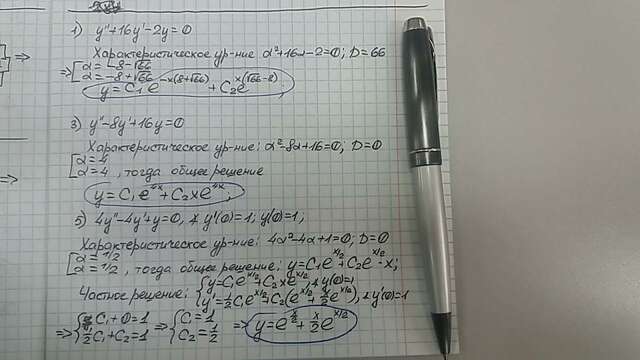 1) y''+16y'-2y=0
Характеристическое ур-ние α²+16α-2=0; D=66
=> [α=-8-√66
α=-8+√66
y=C₁e^(-x(8+√66)) + C₂e^(x(√66-8))
3) y''-8y'+16y=0
Характеристическое ур-ние: α²-8α+16=0; D=0
[α=4
α=4, тогда общее решение
y=C₁e^(4x)+C₂xe^(4x);
=>
5) 4y''-4y'+y=0, y'(0)=1; y(0)=1;
Характеристическое ур-ние: 4α²-4α+1=0; D=0
[α=1/2
α=1/2, тогда общее решение: y=C₁e^(x/2)+C₂e^(x/2)·x;
Частное решение: {y=C₁e^(x/2)+C₂xe^(x/2), y(0)=1
y'=½C₁e^(x/2)+C₂(e^(x/2)+x/2 e^(x/2)), y'(0)=1
=> {C₁+0=1
½C₁+C₂=1
=> {C₁=1
C₂=½
=> y=e^(x/2)+x/2 e^(x/2)